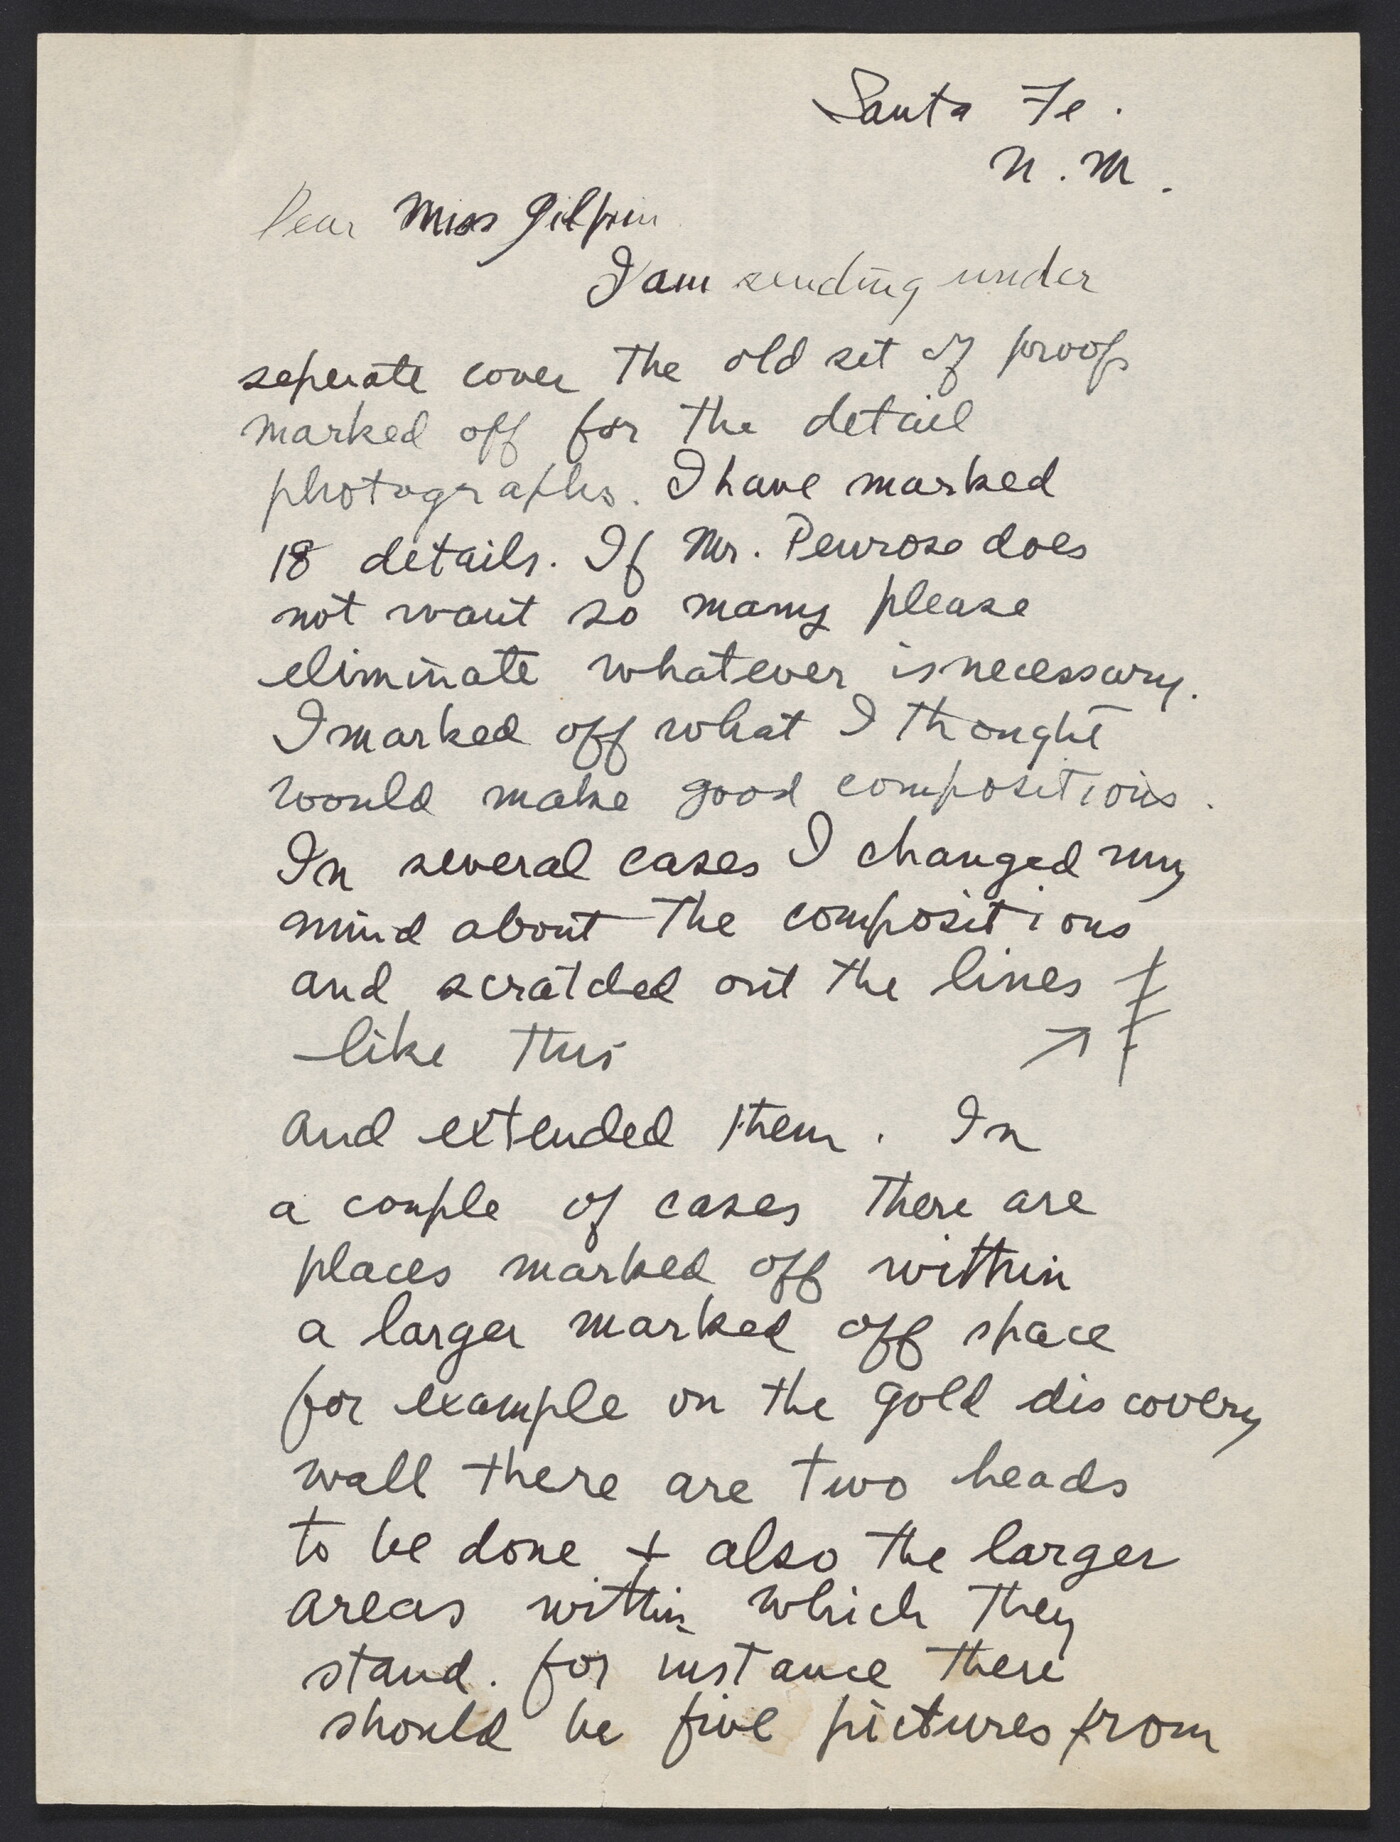 Santa Fe.
N.M.
Dear Miss Gilpin
I am sending under
seperate cover the old set of proofs
marked off for the detail
photographs. I have marked
18 details. If Mr. Penrose does
not want so many please
eliminate whatever is necessary.
I marked off what I thought
would make good compositions.
In several cases I changed my
mind about the compositions
and scratched out the lines
like this
and extended them. In
a couple of cases there are
places marked off within
a larger marked off space
for example on the gold discovery
wall there are two heads
to be done + also the larger
areas within which they
stand. for instance there
should be five pictures from